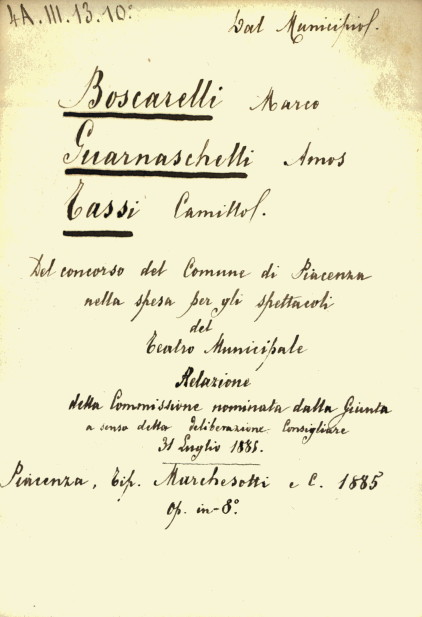 4A.III.13.10°
Dal Municipio.
Boscarelli Marco
Guarnaschelli Amos
Tassi Camillo.
Del concorso del Comune di Piacenza
nella spesa per gli spettacoli
del
Teatro Municipale
Relazione
della Commissione nominata dalla Giunta
a senso della deliberazione Consigliare
31 Luglio 1885.
Piacenza, Tip. Marchesotti e C. 1885
Op. in-8°.